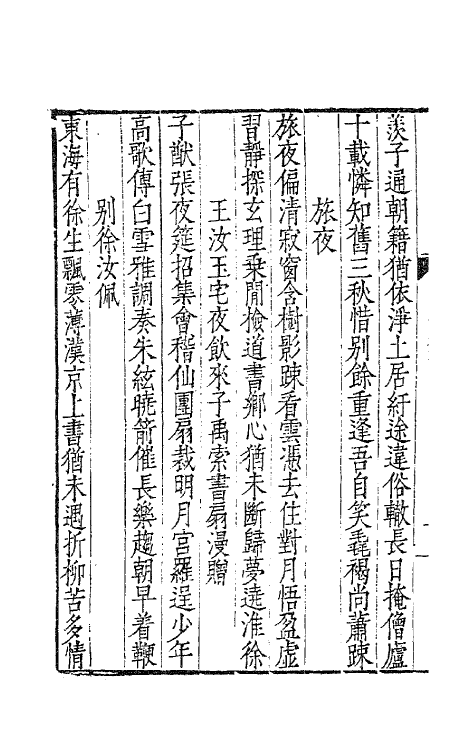 羨子通朝籍猶依淨土居紆途違俗轍長日掩僧廬
十載憐知舊三秋惜别餘重逢吾自笑毳褐尚蕭踈
旅夜
旅夜偏清寂窗含樹影踈看雲憑去住對月悟盈虛
習靜探玄理乘閒檢道書鄉心猶未斷歸夢遶淮徐
王汝玉宅夜飲來子禹索書扇漫贈
子猷張夜筵招集會稽仙團扇裁明月宮羅逞少年
高歌傳白雪雅調奏朱絃曉箭催長樂趨朝早着鞭
别徐汝佩
東海有徐生飄零薄漢京上書猶未遇折柳苦多情